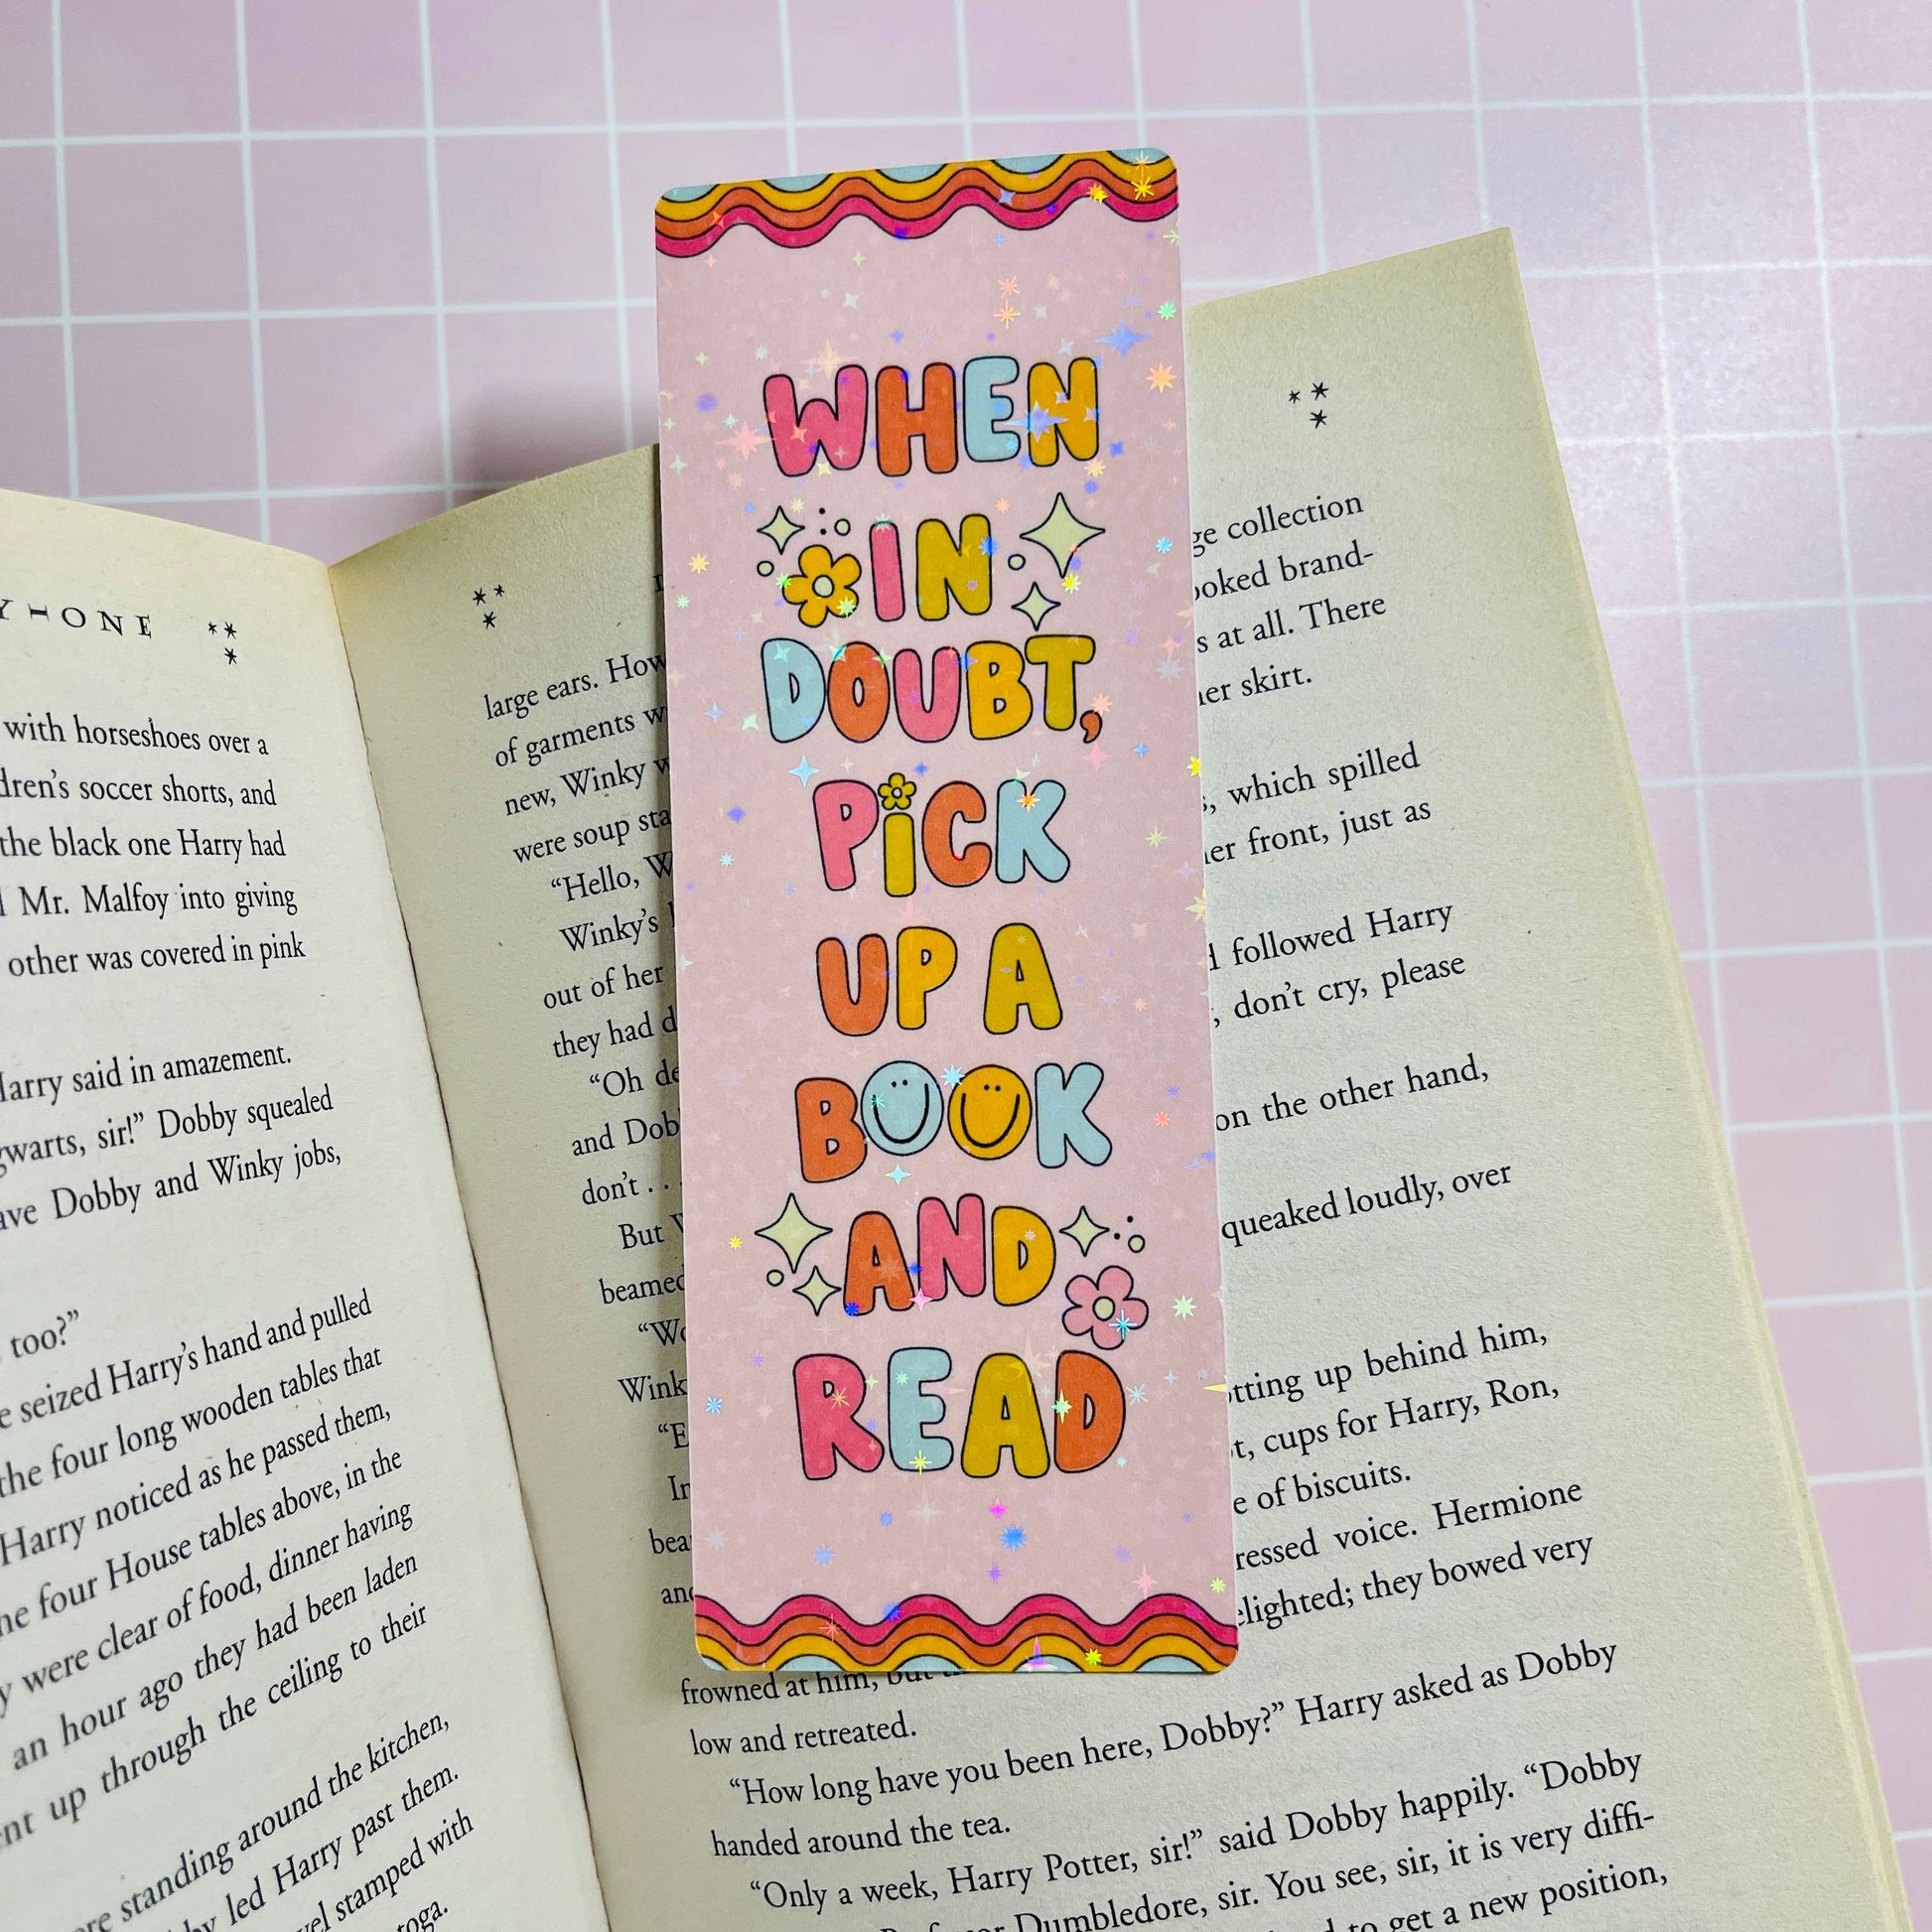 WHEN
IN
DOUBT,
PICK
UP A
BOOK
AND
READ
with horseshoes over a
soccer shorts, and
the black one Harry had
Mr. Malfoy into giving
other was covered in pink
Harry said in amazement.
sir!” Dobby squealed
Dobby and Winky jobs,
too?”
seized Harry’s hand and pulled
the four long wooden tables that
Harry noticed as he passed them,
four House tables above, in the
were clear of food, dinner having
an hour ago they had been laden
up through the ceiling to their
standing around the kitchen,
led Harry past them.
stamped with
large ears. How
of garments
new, Winky
were soup
“Hello,
Winky’s
out of her
they had
“Oh
and
don’t . .
But
collection
brand-
at all. There
skirt.
which spilled
front, just as
followed Harry
don’t cry, please
on the other hand,
loudly, over
up behind him,
cups for Harry, Ron,
of biscuits.
voice. Hermione
they bowed very
frowned at him, but
low and retreated.
“How long have you been here, Dobby?” Harry asked as Dobby
handed around the tea.
“Only a week, Harry Potter, sir!” said Dobby happily. “Dobby
Dumbledore, sir. You see, sir, it is very diffi-
to get a new position,